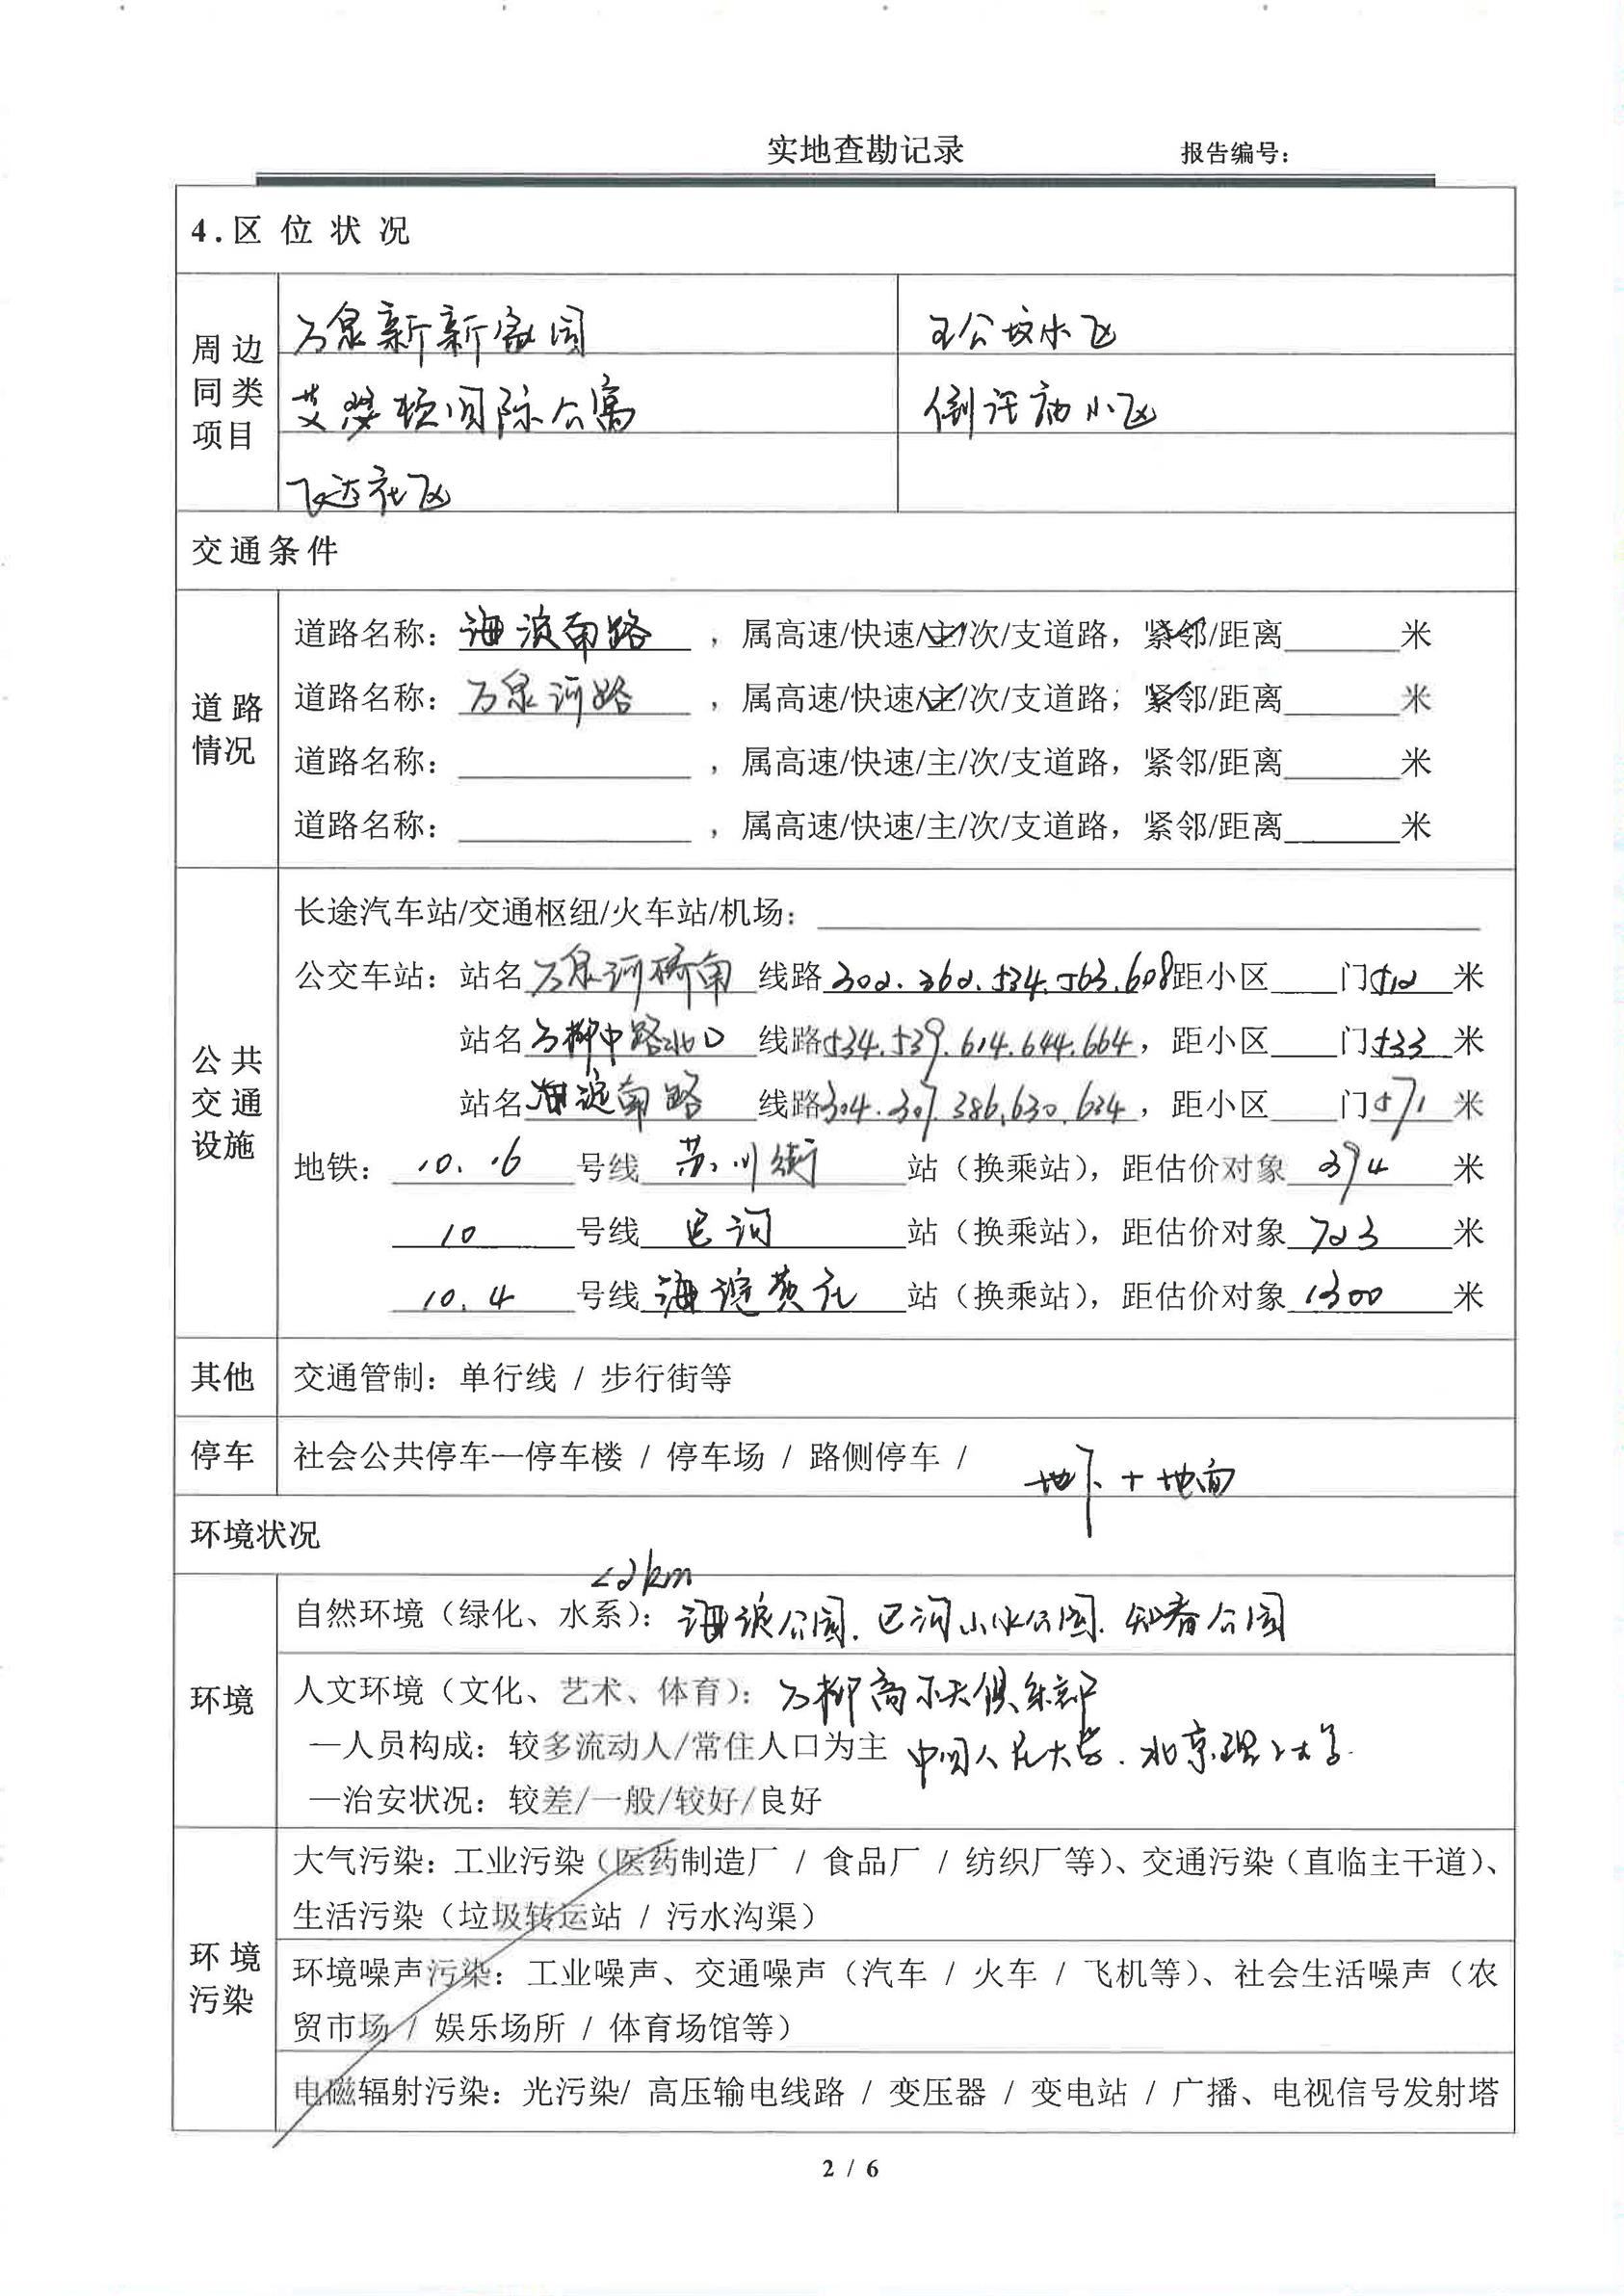 实地查勘记录 报告编号：
4.区位状况
周边同类项目
万泉新新家园 王公坟小区
艾瑟顿国际公寓 倒座庙小区
飞达社区
交通条件
道路情况
道路名称：海淀南路，属高速/快速/主/次/支道路，紧邻/距离______米
道路名称：万泉河路，属高速/快速/主/次/支道路，紧邻/距离______米
道路名称：______，属高速/快速/主/次/支道路，紧邻/距离______米
道路名称：______，属高速/快速/主/次/支道路，紧邻/距离______米
公共交通设施
长途汽车站/交通枢纽/火车站/机场：______
公交车站：站名万泉河桥南 线路302.360.534.563.608距小区____门512米
站名万柳中路北口 线路534.539.614.644.664，距小区____门533米
站名海淀南路 线路304.307.386.630.634，距小区____门571米
地铁：10.16号线苏州街站（换乘站），距估价对象394米
10号线巴沟站（换乘站），距估价对象723米
10.4号线海淀黄庄站（换乘站），距估价对象1300米
其他 交通管制：单行线 / 步行街等
停车 社会公共停车—停车楼 / 停车场 / 路侧停车 / 地下+地面
环境状况
<2km
环境
自然环境（绿化、水系）：海淀公园.巴沟山水公园.知春公园
人文环境（文化、艺术、体育）：万柳高尔夫俱乐部
—人员构成：较多流动人/常住人口为主 中国人民大学.北京理工大学.
—治安状况：较差/一般/较好/良好
环境污染
大气污染：工业污染（医药制造厂 / 食品厂 / 纺织厂等）、交通污染（直临主干道）、
生活污染（垃圾转运站 / 污水沟渠）
环境噪声污染：工业噪声、交通噪声（汽车 / 火车 / 飞机等）、社会生活噪声（农
贸市场 / 娱乐场所 / 体育场馆等）
电磁辐射污染：光污染/ 高压输电线路 / 变压器 / 变电站 / 广播、电视信号发射塔
2 / 6